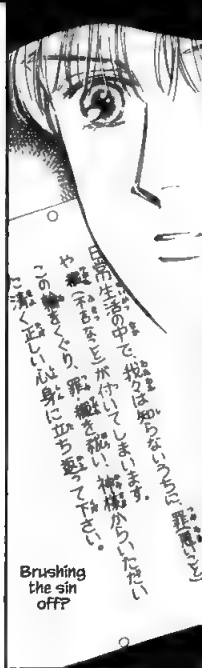 日常生活の中で、我々は知らないうちに罪(悪いこと)
や穢(不吉なこと)が付いてしまいます。
この輪をくぐり、罪穢を祓い、神様からいただい
た清く正しい心身に立ち返って下さい。
Brushing
the sin
off?